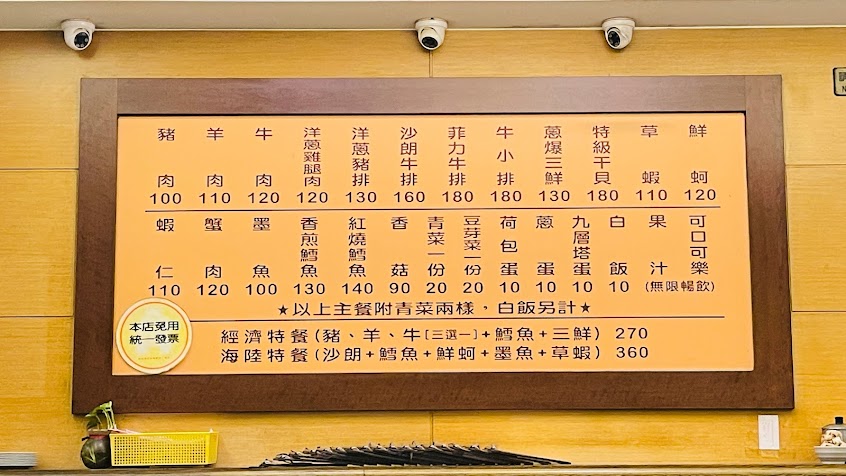 豬肉 羊肉 牛肉 洋蔥雞腿肉 洋蔥豬排 沙朗牛排 菲力牛排 牛小排 蔥爆三鮮 特級干貝 草蝦 鮮蚵
100 110 120 120 130 160 180 180 130 180 110 120
蝦仁 蟹肉 墨魚 香煎鱈魚 紅燒鱈魚 香菇 青菜一份 豆芽菜一份 荷包蛋 蔥蛋 九層塔蛋 白飯 果汁 可口可樂
110 120 100 130 140 90 20 20 10 10 10 10 (無限暢飲)
★以上主餐附青菜兩樣,白飯另計★
本店免用
統一發票
經濟特餐(豬、羊、牛[三選一]+鱈魚+三鮮) 270
海陸特餐(沙朗+鱈魚+鮮蚵+墨魚+草蝦) 360